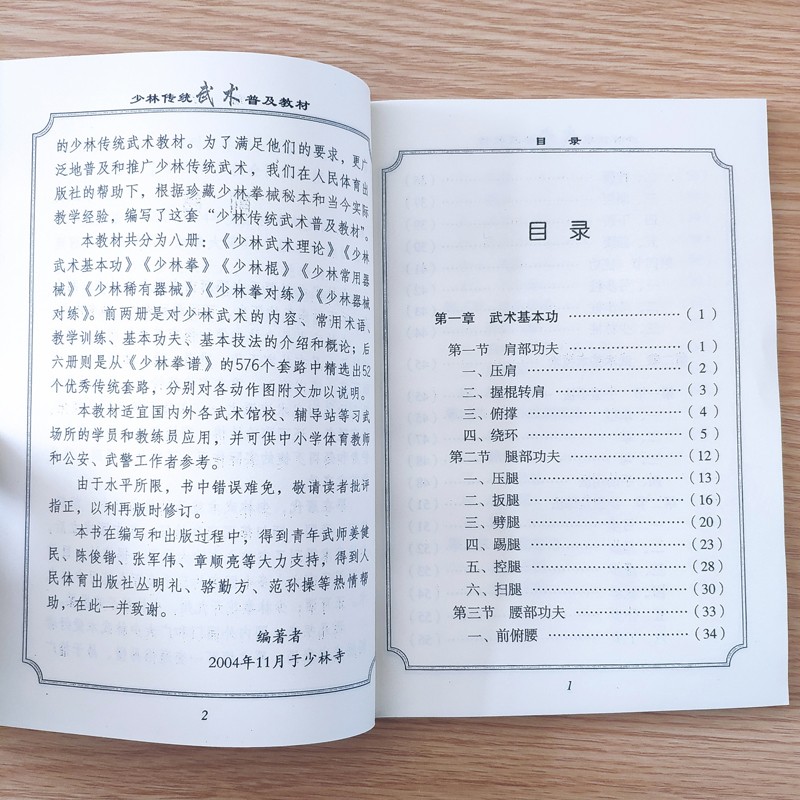 少林传统武术普及教材
的少林传统武术教材。为了满足他们的要求，更广
泛地普及和推广少林传统武术，我们在人民体育出
版社的帮助下，根据珍藏少林拳械秘本和当今实际
教学经验，编写了这套“少林传统武术普及教材”。
本教材共分为八册：《少林武术理论》《少林
武术基本功》《少林拳》《少林棍》《少林常用器
械》《少林稀有器械》《少林拳对练》《少林器械
对练》。前两册是对少林武术的内容、常用术语、
教学训练、基本功夫、基本技法的介绍和概论；后
六册则是从《少林拳谱》的576个套路中精选出52
个优秀传统套路，分别对各动作图附文加以说明。
本教材适宜国内外各武术馆校、辅导站等习武
场所的学员和教练员应用，并可供中小学体育教师
和公安、武警工作者参考。
由于水平所限，书中错误难免，敬请读者批评
指正，以利再版时修订。
本书在编写和出版过程中，得到青年武师姜健
民、陈俊锴、张军伟、章顺亮等大力支持，得到人
民体育出版社丛明礼、骆勤方、范孙操等热情帮
助，在此一并致谢。
编著者
2004年11月于少林寺
2
目录
目录
第一章 武术基本功 ……………（1）
第一节 肩部功夫 ……………（1）
一、压肩 ……………（2）
二、握棍转肩 ……………（3）
三、俯撑 ……………（4）
四、绕环 ……………（5）
第二节 腿部功夫 ……………（12）
一、压腿 ……………（13）
二、扳腿 ……………（16）
三、劈腿 ……………（20）
四、踢腿 ……………（23）
五、控腿 ……………（28）
六、扫腿 ……………（30）
第三节 腰部功夫 ……………（33）
一、前俯腰 ……………（34）
1